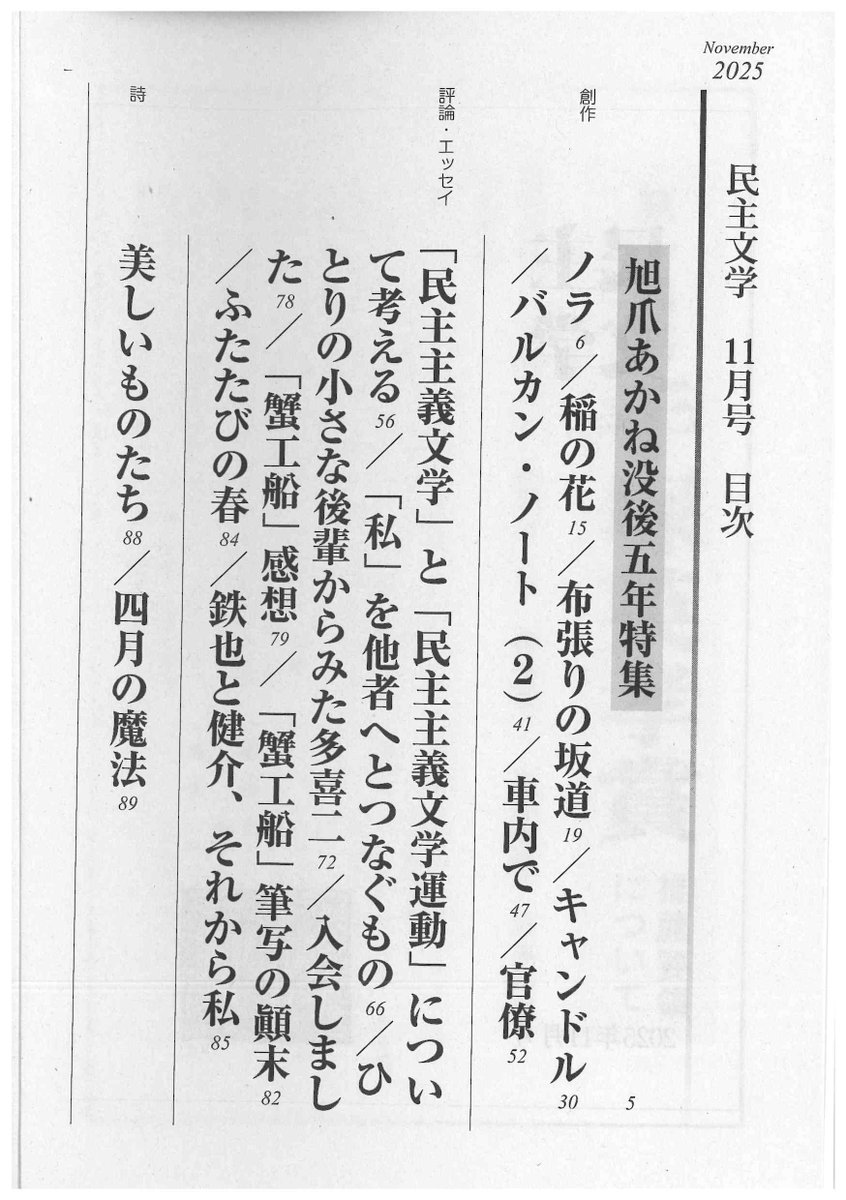 November
2025
民主文学 11月号 目次
旭爪あかね没後五年特集 5
創作
ノラ 6／稲の花 15／布張りの坂道 19／キャンドル 30
／バルカン・ノート（2）41／車内で 47／官僚 52
評論・エッセイ
「民主主義文学」と「民主主義文学運動」につい
て考える 56／「私」を他者へとつなぐもの 66／ひ
とりの小さな後輩からみた多喜二 72／入会しまし
た 78／「蟹工船」感想 79／「蟹工船」筆写の顚末 82
／ふたたびの春 84／鉄也と健介、それから私 85
詩
美しいものたち 88／四月の魔法 89